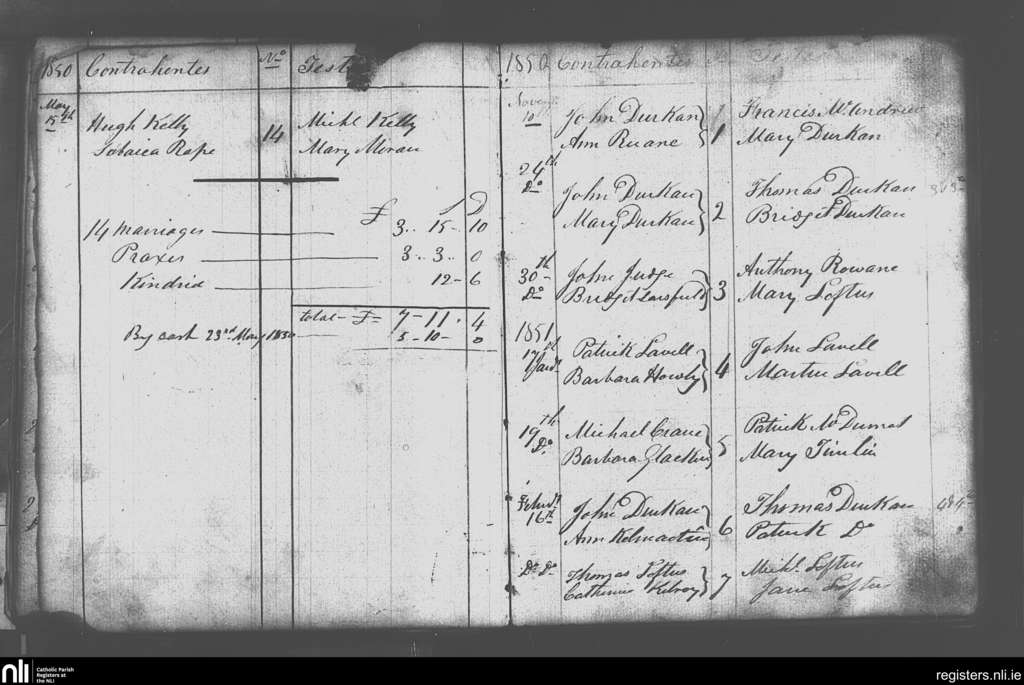 1850 Contrahentes No Test
May 15th
Hugh Kelly 14 Michl Kelly
Sobacca Rape Mary Moran
£ S D
14 marriages 3.. 15.. 10
Praxis 3.. 3.. 0
Kindrid 12 - 6
total - £ = 7 - 11 . 4
By cash 23rd May 1850 5 - 10 - 0
1850 Contrahentes Testes
Novem. 10
John Durkan } 1 Francis McAndrew
Ann Ruane Mary Durkan
24th Do
John Durkan } 2 Thomas Durkan
Mary Durkan Bridget Durkan
30th Do
John Judge } 3 Anthony Rowane
Bridget Mary Loftus
1851
17th Jany
Patrick Lavell } 4 John Lavell
Barbara Howly Martin Lavell
19th Do
Michael Crane } 5 Patrick
Barbara Glackin Mary Timlin
Febry 16th
John Durkan } 6 Thomas Durkan
Ann Kilmartin Patrick Do
Do Do
Thomas Loftus } 7 Michl Loftus
Catherine Kilroy Jane Loftus
nli
Catholic Parish
Registers at
the NLI
registers.nli.ie